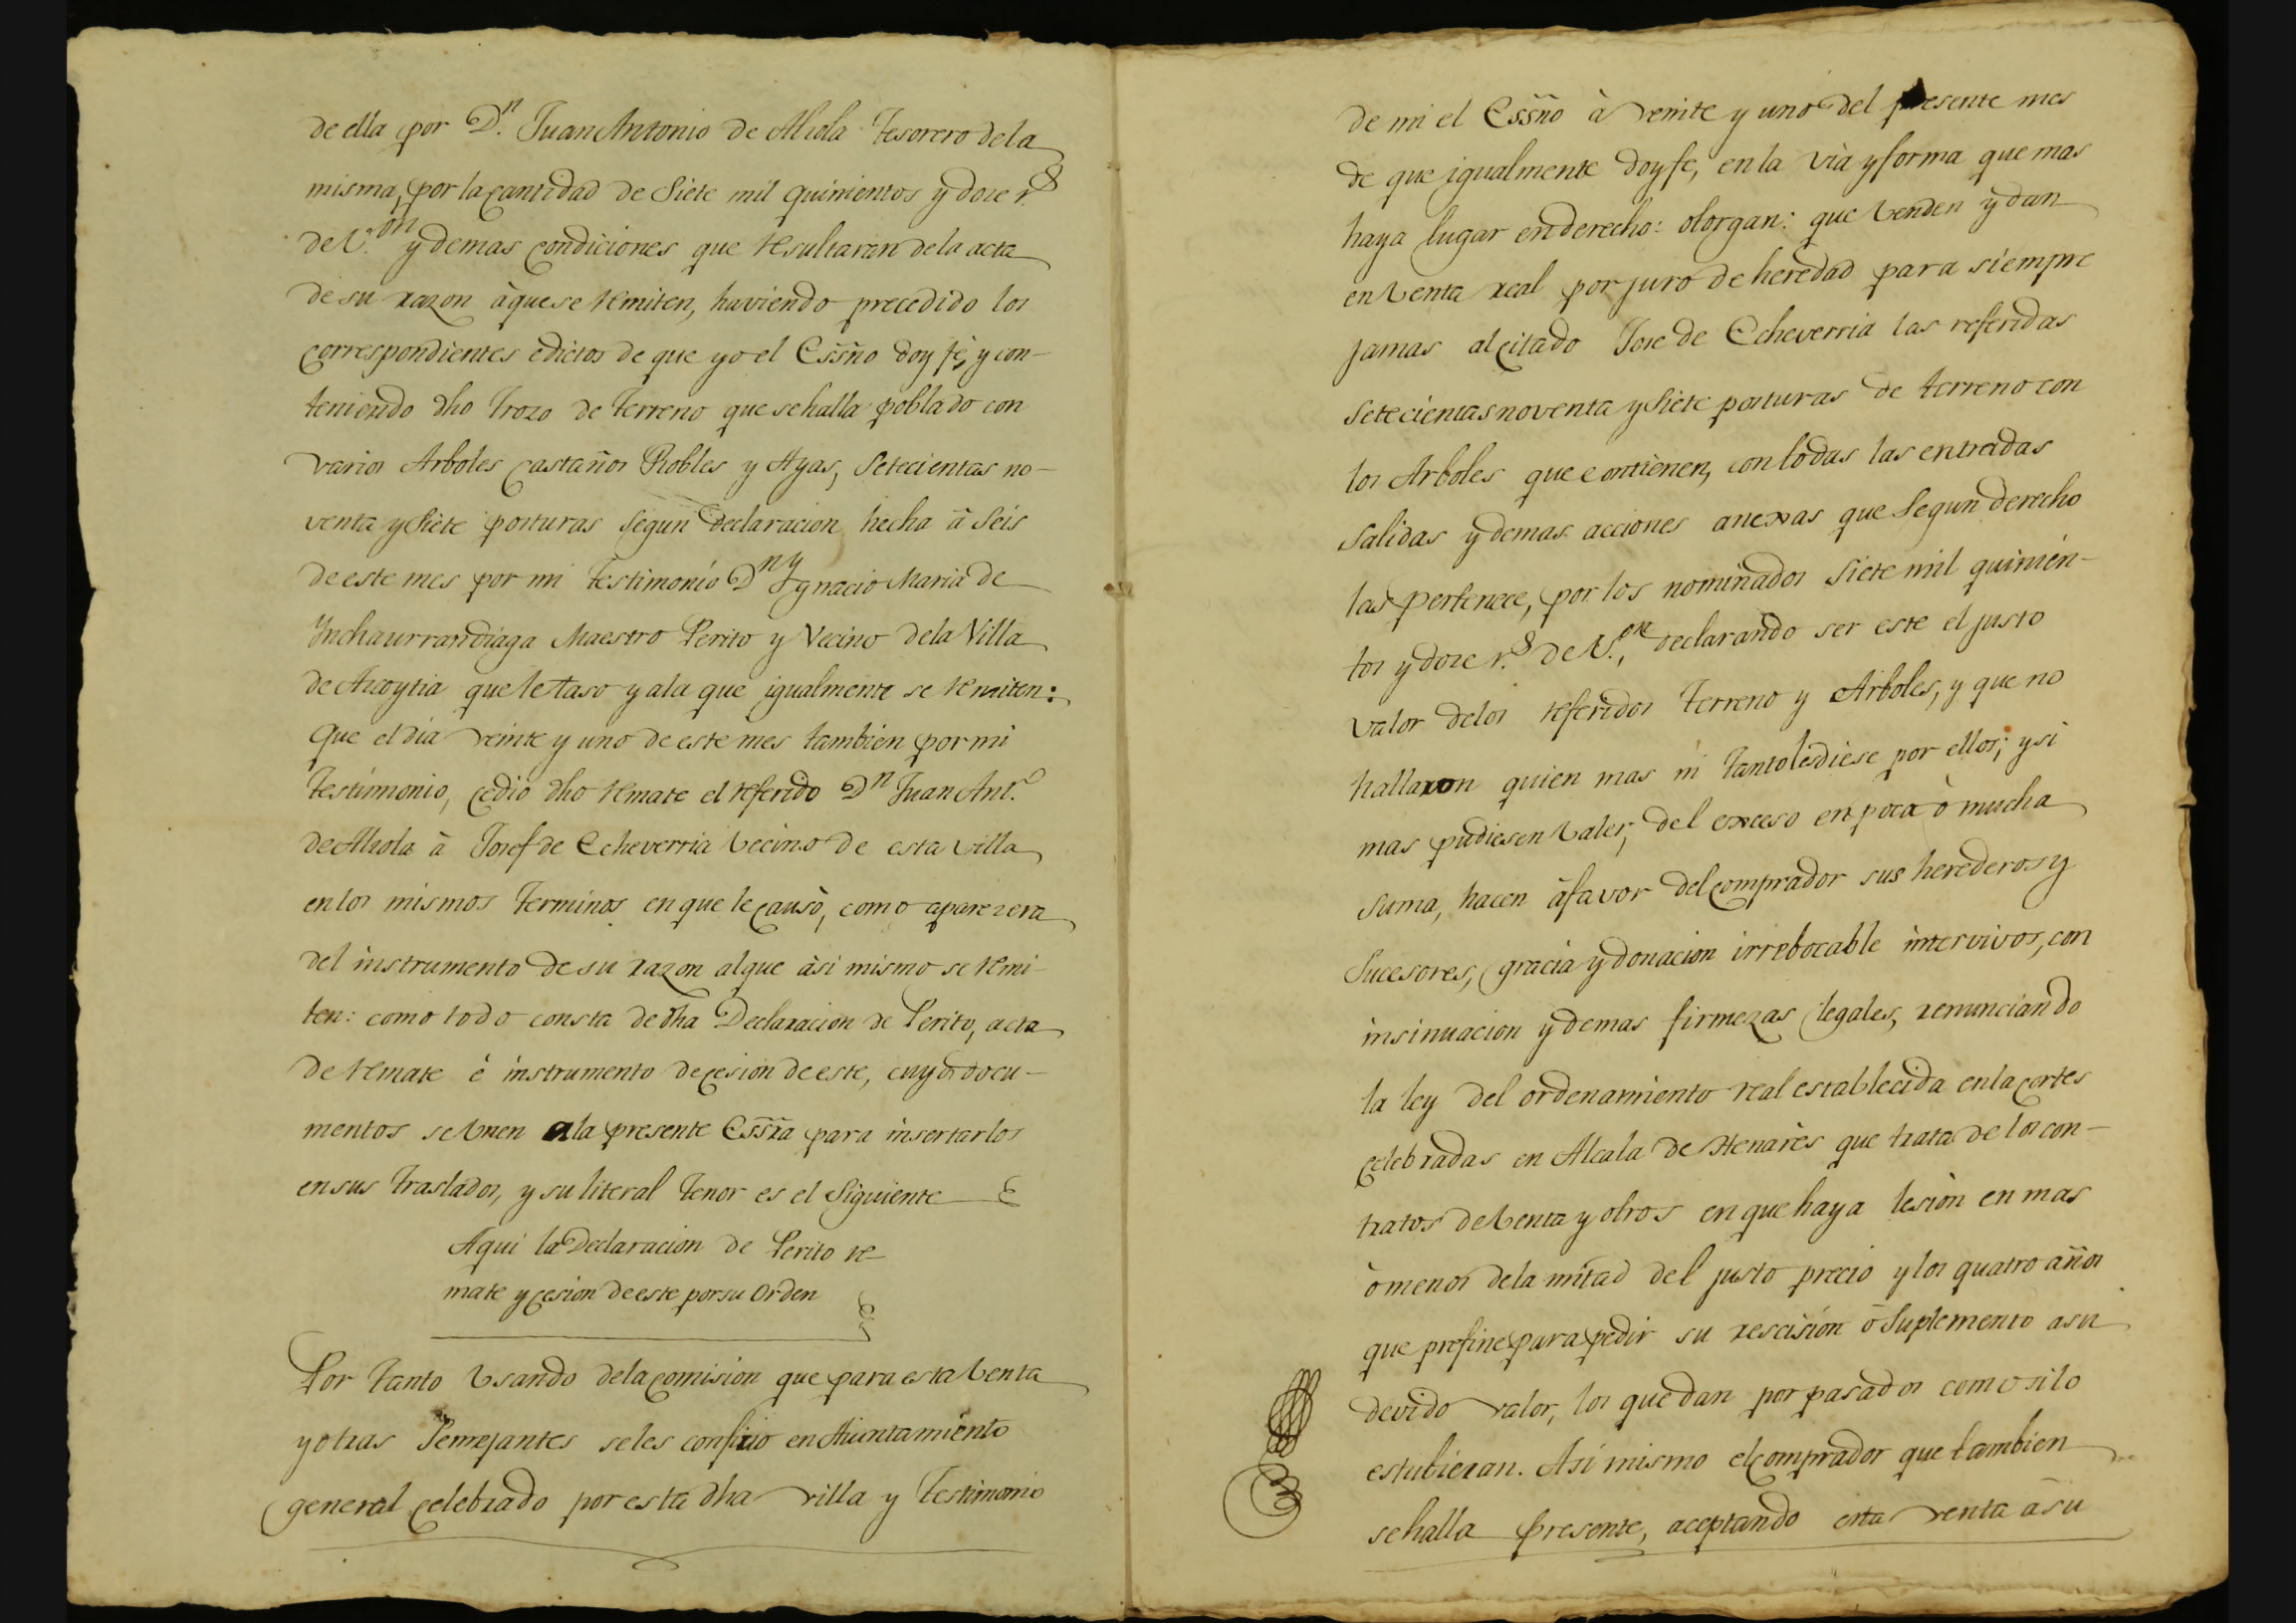 de ella por D.n Juan Antonio de Alzola Tesorero de la
misma, por la cantidad de Siete mil quinientos y doce r.s
de V.on y demas condiciones que resultaran de la acta
de su razon à que se remiten, haviendo precedido los
correspondientes edictos de que yo el Essño doy fé, y con-
teniendo dho Trozo de Terreno que se halla poblado con
varios Arboles castaños Robles y Ayas, Setecientas no-
venta y Siete posturas segun declaracion hecha à Seis
de este mes por mi Testimonio Dn Ygnacio Maria de
Ynchaurrandiaga Maestro Perito y Vecino de la Villa
de Azcoytia que le taso y a la que igualmente se remiten:
Que el dia veinte y uno de este mes tambien por mi
Testimonio, cedio dho remate el referido Dn Juan Ant.o
de Alzola à Josef de Echeverria Vecino de esta Villa
en los mismos Terminos en que le causò, como aparezera
del instrumento de su razon al que àsi mismo se remi-
ten: como todo consta de dha Declaracion de Perito, acta
de remate è instrumento de cesion de este, cuyos docu-
mentos se Vnen a la presente Essra para insertarlos
en sus traslados, y su literal Tenor es el Siguiente
Aqui la Declaracion de Perito re-
mate y cesion de este por su Orden
Por Tanto Vsando de la comision que para esta Venta
y otras Semejantes se les confirio en Aiuntamiento
general celebrado por esta dha villa y Testimonio
de mi el Essño à veinte y uno del presente mes
de que igualmente doy fe, en la via y forma que mas
haya lugar en derecho: otorgan: que Venden y dan
en Venta real por juro de heredad para siempre
jamas al citado Jose de Echeverria las referidas
Setecientas noventa y Siete posturas de terreno con
los Arboles que contienen, con todas las entradas
Salidas y demas acciones anexas que Segun derecho
las pertenece, por los nominados Siete mil quinien-
tos y doce r.s de V.on, declarando ser este el justo
valor de los referidos Terreno y Arboles, y que no
hallaron quien mas ni Tanto les diese por ellos; y si
mas pudiesen Valer, del exceso en poca ò mucha
Suma, hacen à favor del comprador sus herederos y
Sucesores, gracia y donacion irrebocable intervivos, con
insinuacion y demas firmezas legales, renunciando
la ley del ordenamiento real establecida en la cortes
celebradas en Alcala de Henares que trata de los con-
tratos de Venta y otros en que haya lesion en mas
ò menos de la mitad del justo precio y los quatro años
que prefine para pedir su rescisión ò Suplemento a su
devido valor, los que dan por pasados como si lo
estubieran. Asi mismo el comprador que tambien
se halla presente, aceptando esta venta à su